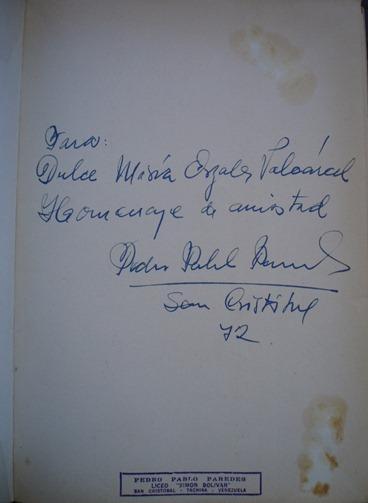 Para:
Dulce María
Homenaje de amistad
Pedro Pablo Paredes
San Cristóbal
72
PEDRO PABLO PAREDES
LICEO "SIMON BOLIVAR"
SAN CRISTOBAL - TACHIRA - VENEZUELA